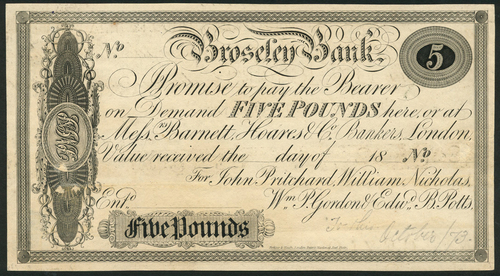 No Broseley Bank. 5
I Promise to pay the Bearer
on Demand FIVE POUNDS here, or at
Messrs Barnett, Hoares & Co. Bankers, London,
Value received the day of 18 No
For John Pritchard, William Nicholas,
Entd Wm. P. Gordon & Edwd. B. Potts
Five Pounds